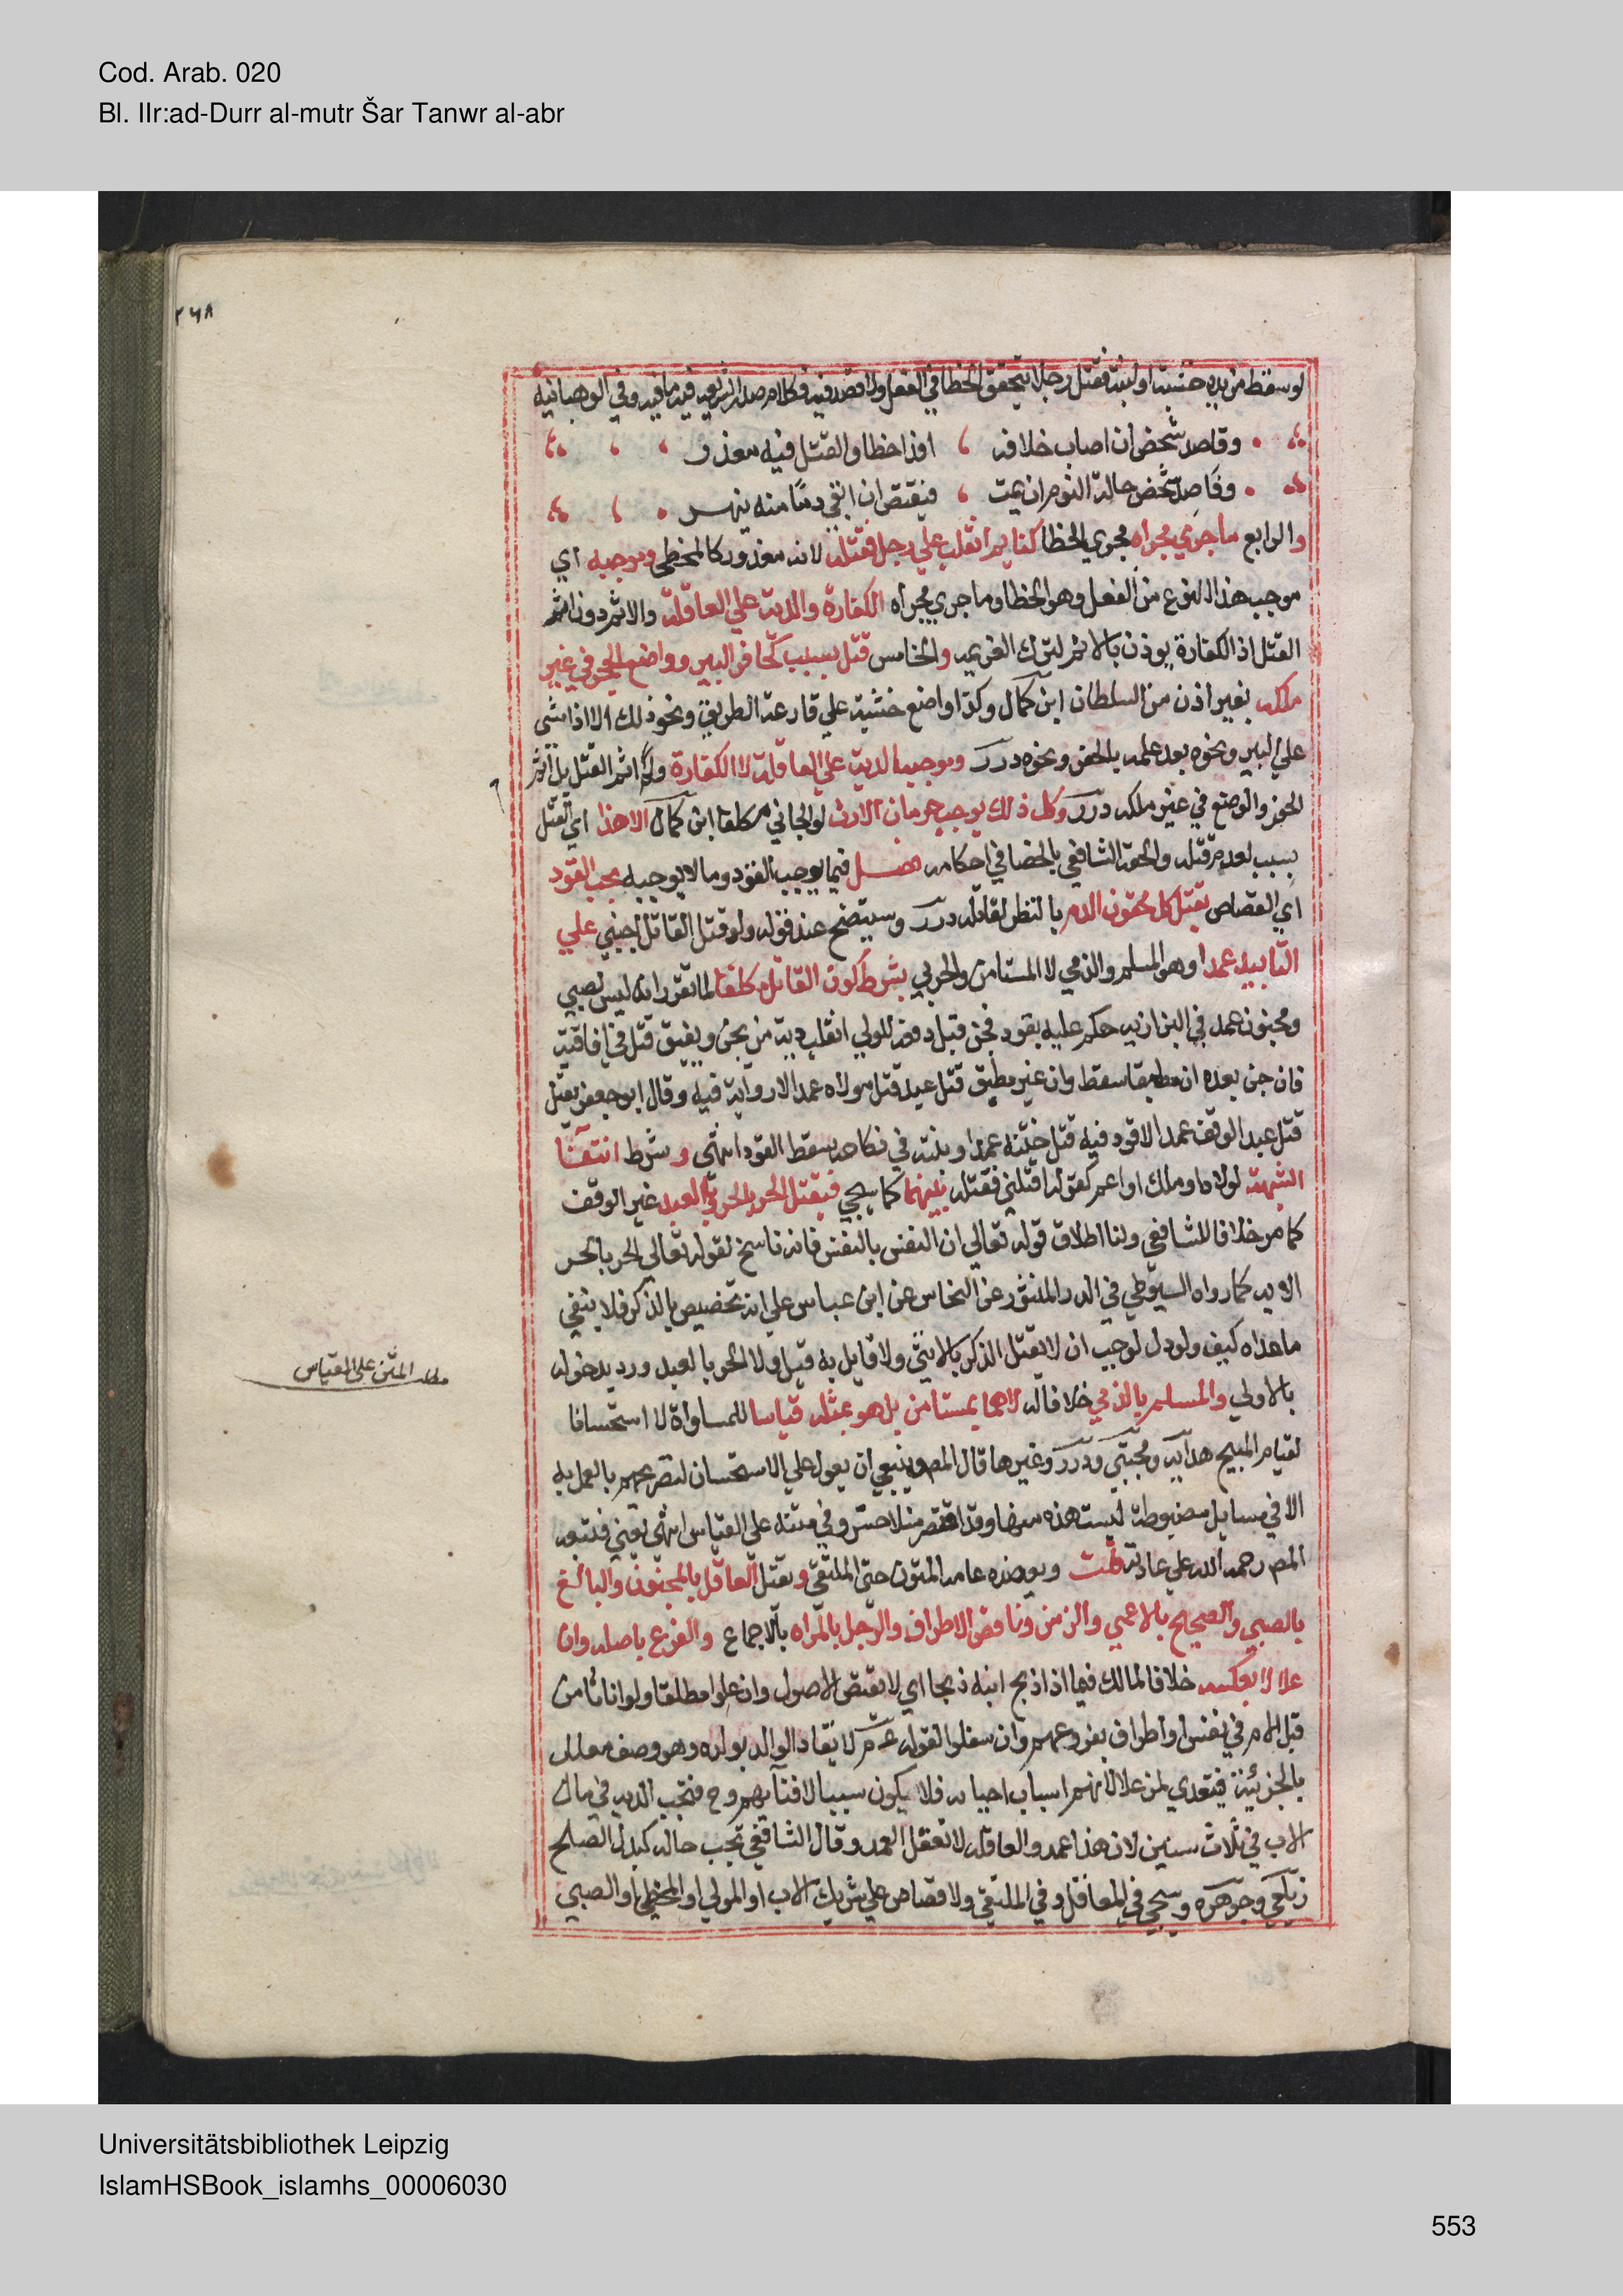 Cod. Arab. 020
Bl. IIr:ad-Durr al-mutr Šar Tanwr al-abr
٢٦٨
لو سقط من يده خشبة او لبنة فقتل رجلا يتحقق الخطا في الفعل ولا قصد فيه فكلام صدر الشريعة فيه ما فيه وفي الوهبانية
وقاصد شخص ان اصاب خلافه ، فذا خطا والقتل فيه معذر
وقاصد شخص حالة النوم ان يمت ، فيقتص ان ابقي دما منه ينهر
والرابع ماجري مجراه مجري الخطا كنايم انقلب علي رجل فقتله لانه معذور كالمخطي وموجبه اي
موجب هذا النوع من الفعل وهو الخطا وماجري مجراه الكفارة والدية علي العاقلة والاثم دون اثم
القتل اذ الكفارة يوذن بالاثم لترك العزيمة والخامس قتل بسبب كحافر البير وواضع الحجر في غير
ملكه بغير اذن من السلطان ابن كمال وكذا واضع خشبة علي قارعة الطريق ونحو ذلك الا اذا مشي
علي البير ونحوه بعد علمه بالحفر ونحوه درر وموجبه الدية علي العاقلة لا الكفارة ولا اثم القتل بل اثم
الحفر والوضع في غير ملكه درر وكل ذلك يوجب حرمان الارث لو الجاني مكلفا ابن كمال الا هذا اي القتل
بسبب لعدم قتله والحقه الشافعي بالخطا في احكامه فصل فيما يوجب القود وما لا يوجبه يجب القود
اي القصاص بقتل كل محقون الدم بالنظر لقاتله درر وسيتضح عند قوله ولو قتل القاتل اجنبي علي
التابيد عمدا وهو المسلم والذمي لا المستامن والحربي بشرط كون القاتل مكلفا لما تقرر انه ليس لصبي
ومجنون عمد في البزازية حكم عليه بقود فجن قبل دفعه للولي انقلب دية من يجن ويفيق قتل في افاقته
فان جن بعده ان مطبقا سقط وان غير مطبق قتل عبد قتل مولاه عمدا لا رواية فيه وقال ابو جعفر يقتل
قتل عبد الوقف عمدا لا قود فيه قتل ختنه عمدا وبنته في نكاحه سقط القود انتهى وشرط انتفا
الشبهة لولاد او ملك او اعم كقوله اقتلني فقتله بينهما كما يجي فيقتل الحر بالحر وبالعبد غير الوقف
كما مر خلافا للشافعي ولنا اطلاق قوله تعالي ان النفس بالنفس فانه ناسخ لقوله تعالي الحر بالحر
الاية كما رواه السيوطي في الدر المنثور عن النحاس عن ابن عباس علي انه تخصيص بالذكر فلا ينفي
ما عداه كيف ولو دل لوجب ان لا يقتل الذكر بالانثي ولا قايل به قيل ولا الحر بالعبد ورد بدخوله
بالاولي والمسلم بالذمي خلافا له لا هما بمستامن بل هو بمثله قياسا للمساواة لا استحسانا
لقيام المبيح هداية ومجتبي ودرر وغيرها قال المصـ وينبغي ان يعول علي الاستحسان لتصريحهم بالعمل به
الا في مسايل مضبوطة ليست هذه منها وقد اقتصر منلا خسرو في متنه علي القياس انتهى يعني فتبعه
المصـ رحمه الله علي عادته قلت ويعضده عامة المتون حتي الملتقي ويقتل العاقل بالمجنون والبالغ
بالصبي والصحيح بالاعمي والزمن وناقص الاطراف والرجل بالمراه بالاجماع والفرع باصله وان
علا لا بعكسه خلافا لمالك فيما اذا ذبح ابنه ذبحا اي لا يقتص الاصول وان علوا مطلقا ولو اناثا من
قبل الام في نفس او اطراف بفروعهم وان سفلوا لقوله عم لا يقاد الوالد بولده وهو وصف معلل
بالجزئية فيتعدي لمن علا لانهم اسباب احيايه فلا يكون سببا لافنايهم وح فتجب الدية في مال
الاب في ثلاث سنين لان هذا عمد والعاقلة لا تعقل العمد وقال الشافعي تجب حالة كبدل الصلح
زيلعي وجوهرة وسيجي في المعاقل وفي الملتقي ولا قصاص علي شريك الاب او المولي او المخطي او الصبي
مطلب المتن على القياس
Universitätsbibliothek Leipzig
IslamHSBook_islamhs_00006030
553